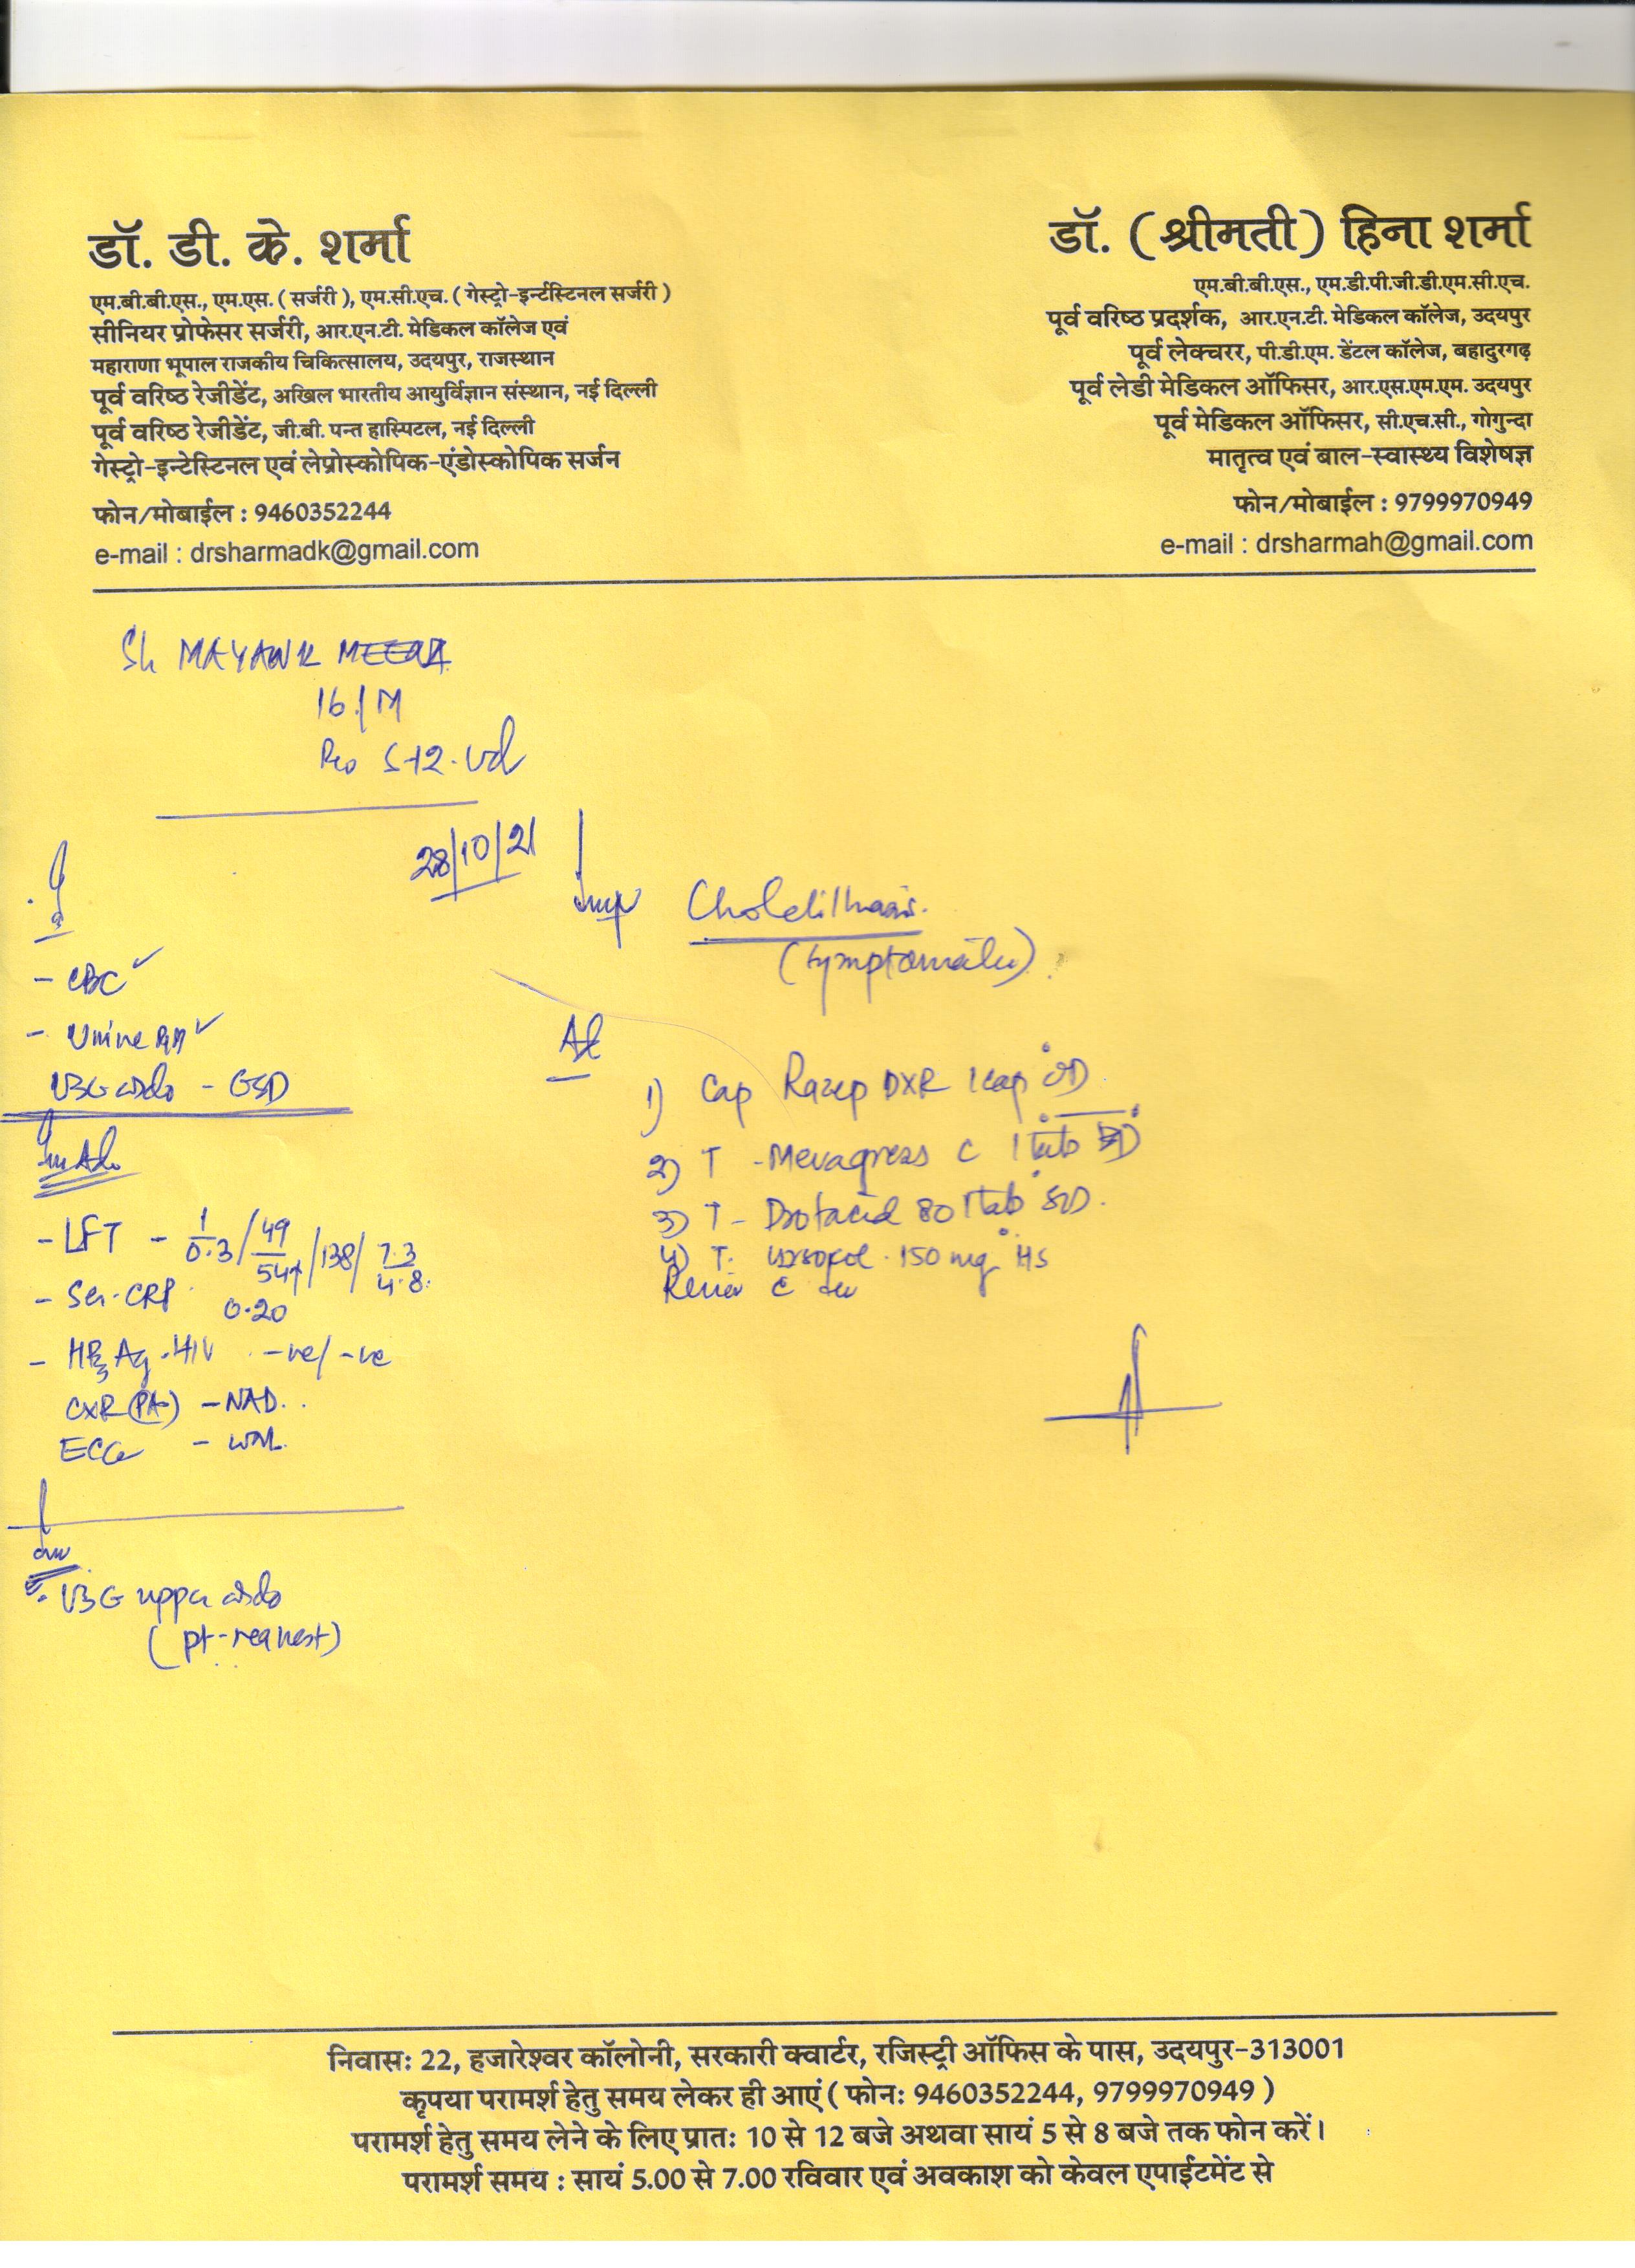 डॉ. डी. के. शर्मा
एम.बी.बी.एस., एम.एस. ( सर्जरी ), एम.सी.एच. ( गेस्ट्रो-इर्न्टस्टिनल सर्जरी )
सीनियर प्रोफेसर सर्जरी, आर.एन.टी. मेडिकल कॉलेज एवं
महाराणा भूपाल राजकीय चिकित्सालय, उदयपुर, राजस्थान
पूर्व वरिष्ठ रेजीडेंट, अखिल भारतीय आयुर्विज्ञान संस्थान, नई दिल्ली
पूर्व वरिष्ठ रेजीडेंट, जी.बी. पन्त हास्पिटल, नई दिल्ली
गेस्ट्रो-इन्टेस्टिनल एवं लेप्रोस्कोपिक-एंडोस्कोपिक सर्जन
फोन/मोबाईल : 9460352244
e-mail : drsharmadk@gmail.com
डॉ. ( श्रीमती ) हिना शर्मा
एम.बी.बी.एस., एम.डी.पी.जी.डी.एम.सी.एच.
पूर्व वरिष्ठ प्रदर्शक, आर.एन.टी. मेडिकल कॉलेज, उदयपुर
पूर्व लेक्चरर, पी.डी.एम. डेंटल कॉलेज, बहादुरगढ़
पूर्व लेडी मेडिकल ऑफिसर, आर.एस.एम.एम. उदयपुर
पूर्व मेडिकल ऑफिसर, सी.एच.सी., गोगुन्दा
मातृत्व एवं बाल-स्वास्थ्य विशेषज्ञ
फोन/मोबाईल : 9799970949
e-mail : drsharmah@gmail.com
Sh MAYANK MEENA
16/M
28/10/21
- CBC
- Urine
USG - GSD
- LFT - 1/0.3 / 49/54 / 138 / 7.3/4.8
- Ser. CRP 0.20
- HBsAg. HIV -ve/-ve
CXR (PA) - NAD.
ECG - WNL
USG upper
(pt-request)
Imp
(Symptomatic)
1) Cap DXR 1 cap OD
2) T - C 1 tab BD
3) T - 80 1 tab
4) T. 150 mg HS
निवास: 22, हजारेश्वर कॉलोनी, सरकारी क्वार्टर, रजिस्ट्री ऑफिस के पास, उदयपुर-313001
कृपया परामर्श हेतु समय लेकर ही आएं ( फोन: 9460352244, 9799970949 )
परामर्श हेतु समय लेने के लिए प्रात: 10 से 12 बजे अथवा सायं 5 से 8 बजे तक फोन करें।
परामर्श समय : सायं 5.00 से 7.00 रविवार एवं अवकाश को केवल एपाईटमेंट से